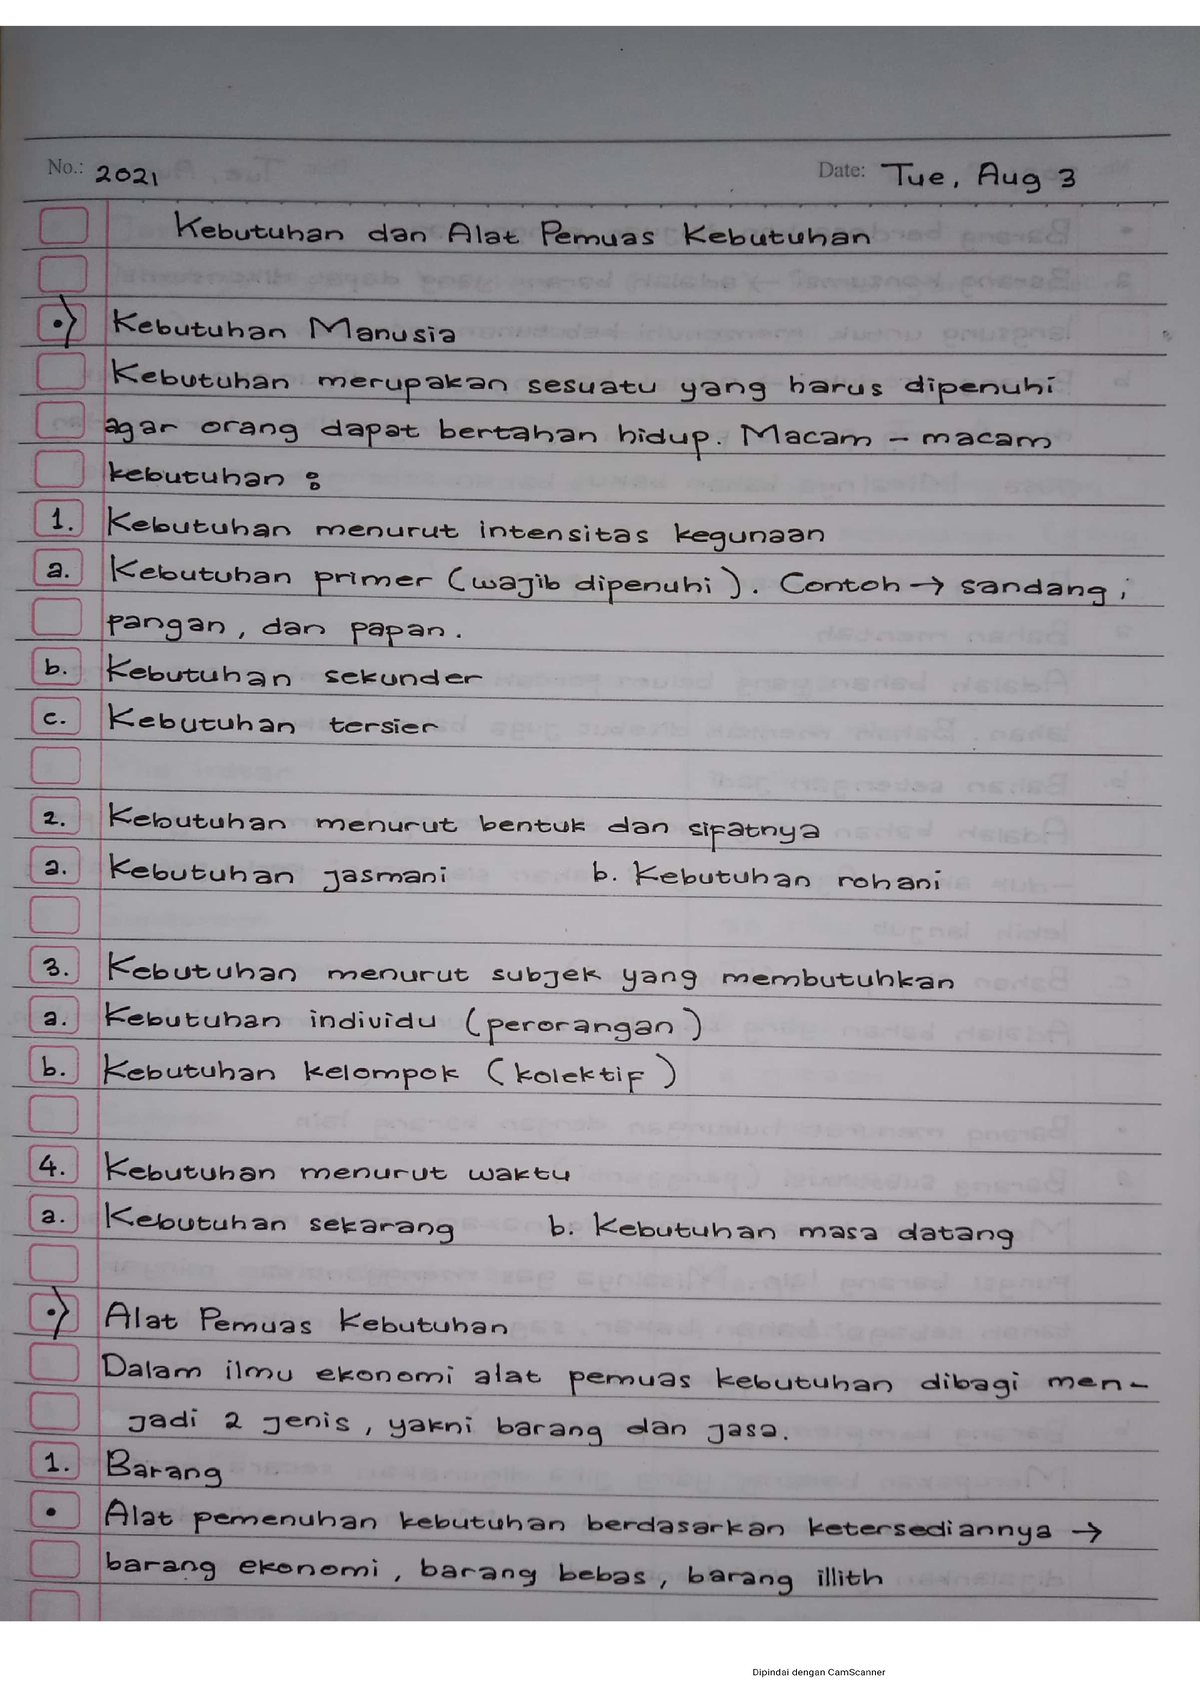 No.: 2021 Date: Tue, Aug 3
Kebutuhan dan Alat Pemuas Kebutuhan
•) Kebutuhan Manusia
Kebutuhan merupakan sesuatu yang harus dipenuhi
agar orang dapat bertahan hidup. Macam - macam
kebutuhan :
1. Kebutuhan menurut intensitas kegunaan
a. Kebutuhan primer (wajib dipenuhi). Contoh → sandang,
pangan, dan papan.
b. Kebutuhan sekunder
c. Kebutuhan tersier
2. Kebutuhan menurut bentuk dan sifatnya
a. Kebutuhan jasmani b. Kebutuhan rohani
3. Kebutuhan menurut subjek yang membutuhkan
a. Kebutuhan individu (perorangan)
b. Kebutuhan kelompok (kolektif)
4. Kebutuhan menurut waktu
a. Kebutuhan sekarang b. Kebutuhan masa datang
•) Alat Pemuas Kebutuhan
Dalam ilmu ekonomi alat pemuas kebutuhan dibagi men-
jadi 2 jenis, yakni barang dan jasa.
1. Barang
• Alat pemenuhan kebutuhan berdasarkan ketersediannya →
barang ekonomi, barang bebas, barang illith
Dipindai dengan CamScanner